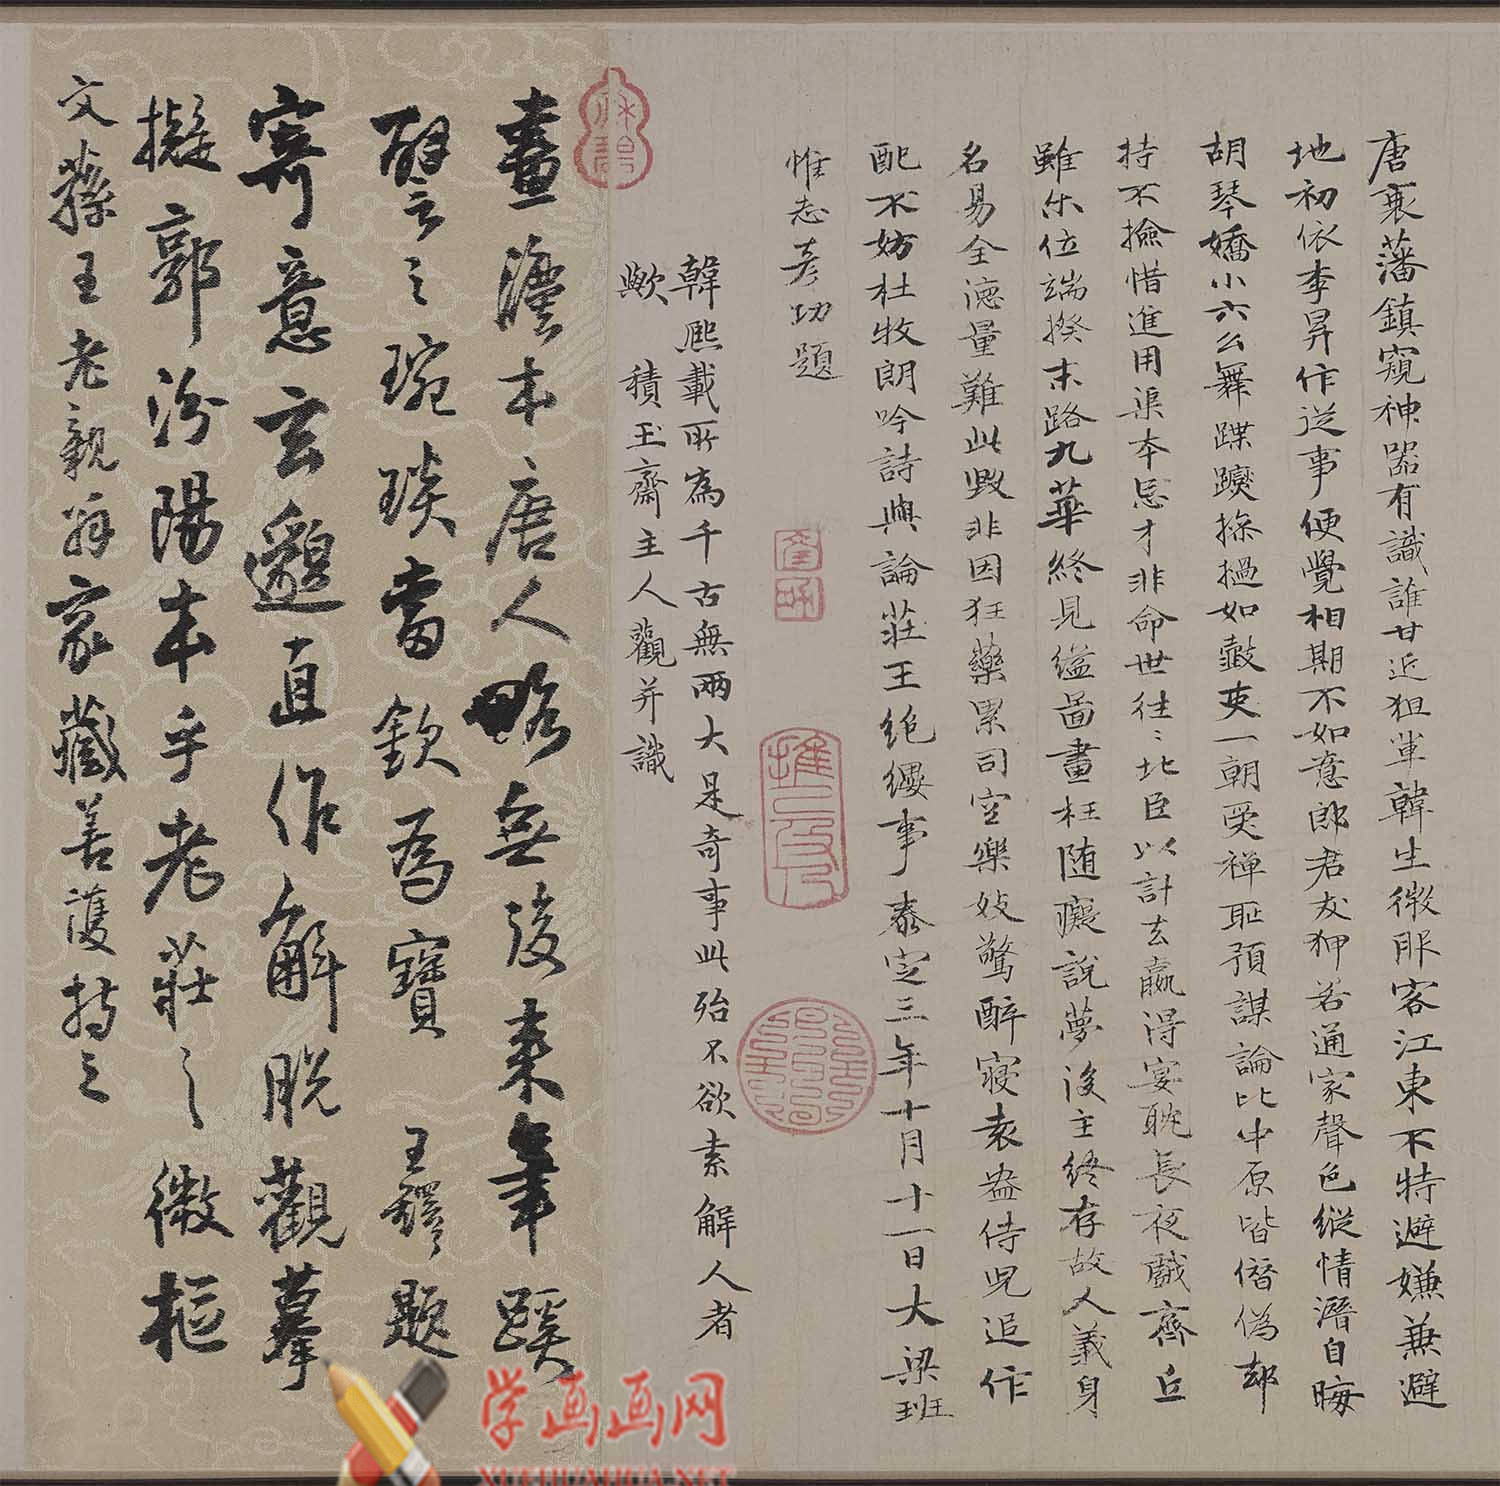 唐衰藩鎮窺神器有識誰甘近狙輩韓生微服客江東不特避嫌兼避
地初依李昪作逆事便覺相期不如意郎君友狎若通家聲色縱情潛自晦
胡琴嬌小六幺舞蹀躞摻撾如鼓吏一朝受禪恥預謀論比中原皆僭偽卻
持不撿惜進用渠本忌才非命世往往北臣以計去贏得宴耽長夜戲齊丘
雖尔位端揆末路九華終見縊啚畫枉随癡說夢後主終存故人義身
名易全德量難此毀非因狂藥累司空樂妓驚醉寢袁盎侍児追作
配不妨杜牧朗吟詩與論莊王絶纓事泰定三年十月十一日大梁班
惟志彥功題
韓熙載所為千古無兩大是奇事此殆不欲索解人者
歟 積玉齋主人觀并識
畫灋本唐人略無後来筆蹊
譬之琬琰當欽為寶 王鐸題
寄意玄邈直作解脱觀摹
擬郭汾陽本乎老莊之微樞
文蓀王老親翁家藏善護持之
学画画网
XUEHUAHUA.NET